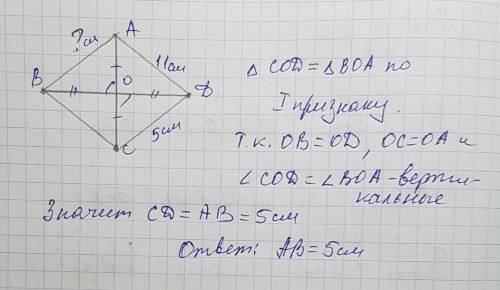 A
?см
11см
B
O
D
5см
C
△ COD = △ BOA по
I признаку.
Т.к. OB = OD, OC = OA и
∠ COD = ∠ BOA - верти-
кальные
Значит CD = AB = 5см
Ответ: AB = 5см